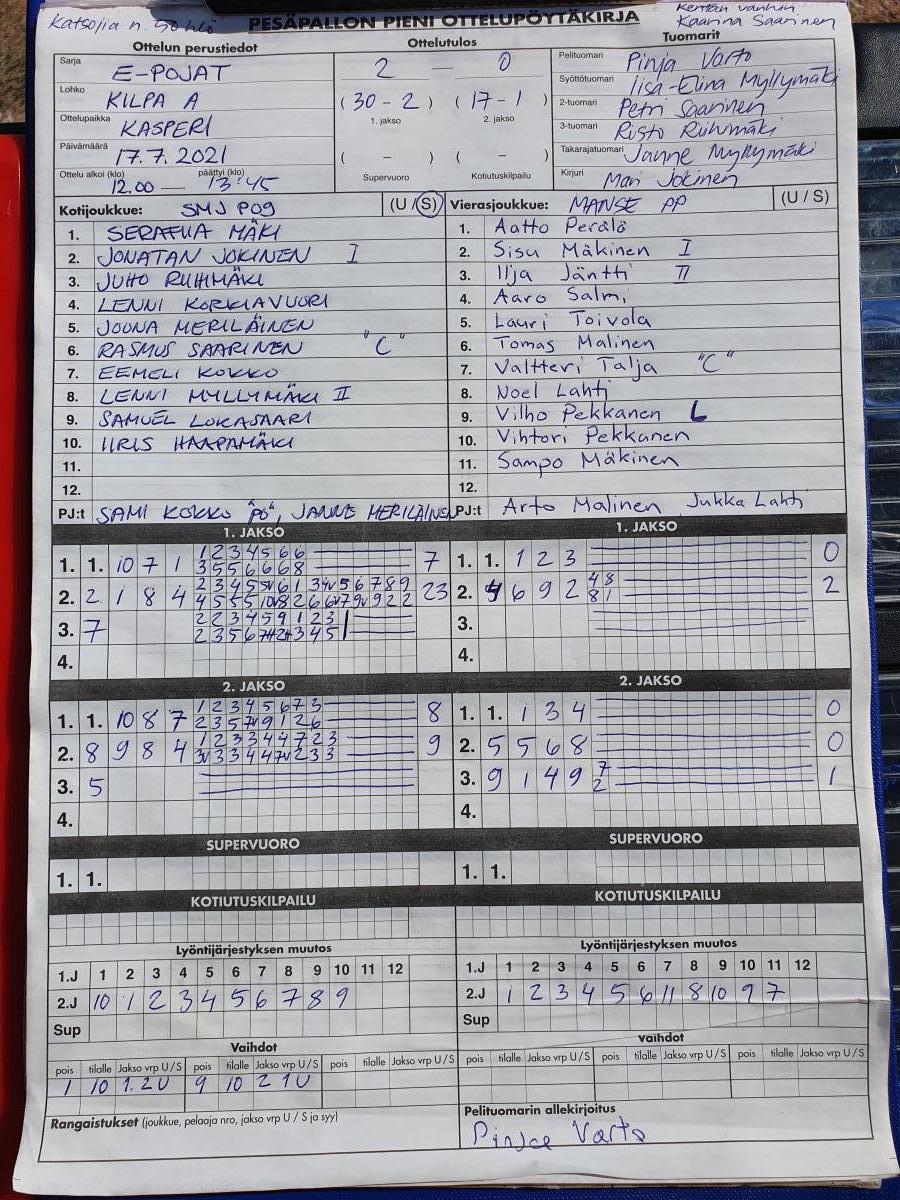 Katsojia n. 50 hlö
PESÄPALLON PIENI OTTELUPÖYTÄKIRJA
Kentän vanhin
Kaarina Saarinen
Ottelun perustiedot
Ottelutulos
Tuomarit
Sarja E-POJAT
Lohko KILPA A
Ottelupaikka KASPERI
Päivämäärä 17.7.2021
Ottelu alkoi (klo) päättyi (klo)
12.00 — 13:45
2 — 0
(30 - 2) (17 - 1)
1. jakso 2. jakso
( - ) ( - )
Supervuoro Kotiutuskilpailu
Pelituomari Pinja Varto
Syöttötuomari Iisa-Elina Myllymäki
2-tuomari Petri Saarinen
3-tuomari Risto Riihimäki
Takarajatuomari Janne Myllymäki
Kirjuri Mari Jokinen
Kotijoukkue: SMJ P09 (U / S)
1. MÄKI
2. JONATAN JOKINEN I
3. JUHO RIIHIMÄKI
4. LENNI KORKIAVUORI
5. JOONA MERILÄINEN
6. RASMUS SAARINEN "C"
7. EEMELI KOKKO
8. LENNI MYLLYMÄKI II
9. SAMUEL
10. IIRIS HAAPAMÄKI
11.
12.
PJ:t SAMI KOKKO "PO", JANNE MERILÄINEN
Vierasjoukkue: MANSE PP (U / S)
1. Aatto Perälä
2. Sisu Mäkinen I
3. Ilja Jäntti II
4. Aaro Salmi
5. Lauri Toivola
6. Tomas Malinen
7. Valtteri Talja "C"
8. Noel Lahti
9. Vilho Pekkanen L
10. Vihtori Pekkanen
11. Sampo Mäkinen
12.
PJ:t Arto Malinen Jukka Lahti
1. JAKSO
1. 1. 10 7 1
1 2 3 4 5 6 6
3 5 5 6 6 6 8
7
2. 2 1 8 4
23
3. 7
4.
1. JAKSO
1. 1. 1 2 3 0
2. 4 6 9 2
4 8
8 1
2
3.
4.
2. JAKSO
1. 1. 10 8 7
1 2 3 4 5 6 7 3
2 3 5 7v 9 1 2 6
8
2. 8 9 8 4
1 2 3 3 4 4 7 2 3
3v 3 3 4 4 7v 2 3 3
9
3. 5
4.
2. JAKSO
1. 1. 1 3 4 0
2. 5 5 6 8 0
3. 9 1 4 9
7
2
1
4.
SUPERVUORO
1. 1.
SUPERVUORO
1. 1.
KOTIUTUSKILPAILU
KOTIUTUSKILPAILU
Lyöntijärjestyksen muutos
1.J 1 2 3 4 5 6 7 8 9 10 11 12
2.J 10 1 2 3 4 5 6 7 8 9
Sup
Lyöntijärjestyksen muutos
1.J 1 2 3 4 5 6 7 8 9 10 11 12
2.J 1 2 3 4 5 6 11 8 10 9 7
Sup
Vaihdot
pois tilalle Jakso vrp U/S pois tilalle Jakso vrp U/S pois tilalle Jakso vrp U/S
1 10 1.2U 9 10 2 1U
Vaihdot
pois tilalle Jakso vrp U/S pois tilalle Jakso vrp U/S pois tilalle Jakso vrp U/S
Rangaistukset (joukkue, pelaaja nro, jakso vrp U / S ja syy)
Pelituomarin allekirjoitus
Pinja Varto